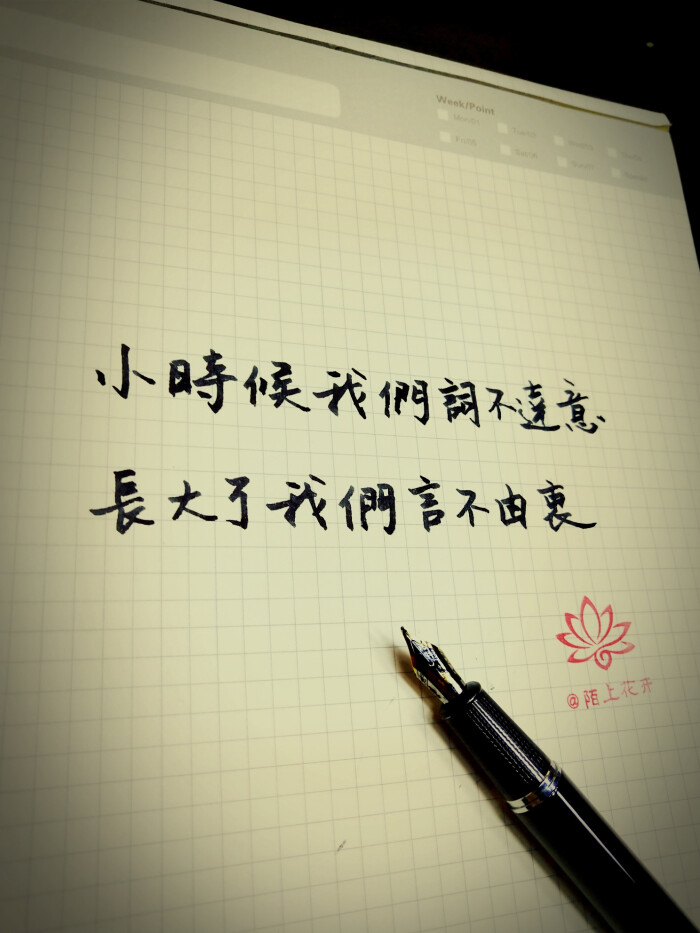 Week/Point
小時候我們詞不達意
長大了我們言不由衷
@陌上花开